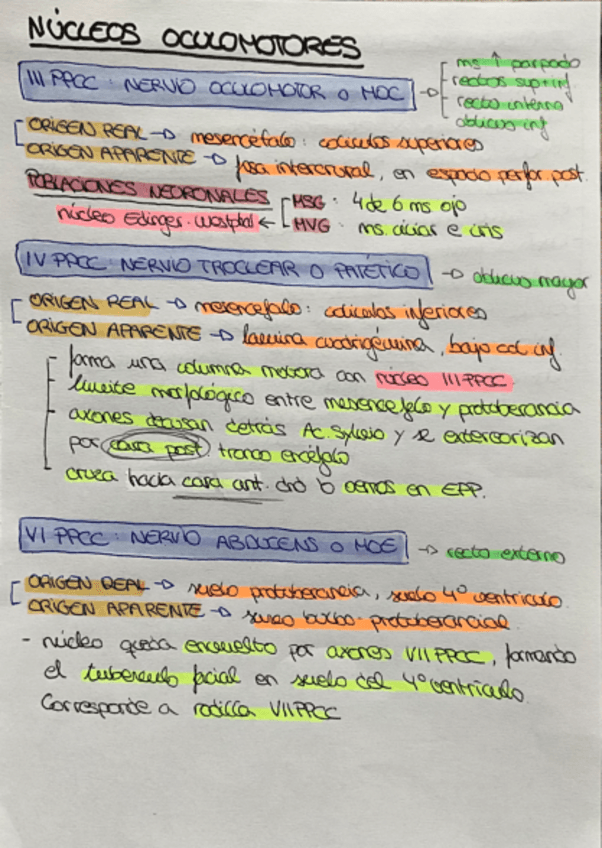 NÚCLEOS OCULOMOTORES
III PPCC: NERVIO OCULOMOTOR O MOC
ms ↑ parpado
rectos sup+inf
recto interno
oblicuo inf
ORIGEN REAL → mesencéfalo: colículos superiores
ORIGEN APARENTE → fosa intercrural, en espacio perfor post.
POBLACIONES NEURONALES
MSG: 4 de 6 ms ojo
núcleo Edinger-Westphal ← MVG: ms. ciliar e iris
IV PPCC: NERVIO TROCLEAR O PATÉTICO → oblicuo mayor
ORIGEN REAL → mesencéfalo: colículos inferiores
ORIGEN APARENTE → lámina cuadrigémina, bajo col. inf.
forma una columna motora con núcleo III PPCC.
límite morfológico entre mesencéfalo y protuberancia
axones decusan detrás Ac. Sylvio y se exteriorizan
por cara post tronco encéfalo
cruza hacia cara ant. en EPP.
VI PPCC: NERVIO ABDUCENS O MOE → recto externo
ORIGEN REAL → suelo protuberancia, suelo 4º ventrículo
ORIGEN APARENTE → surco bulbo-protuberancial
- núcleo queda envuelto por axones VII PPCC, formando
el tubérculo facial en suelo del 4º ventrículo.
Corresponde a rodilla VII PPCC